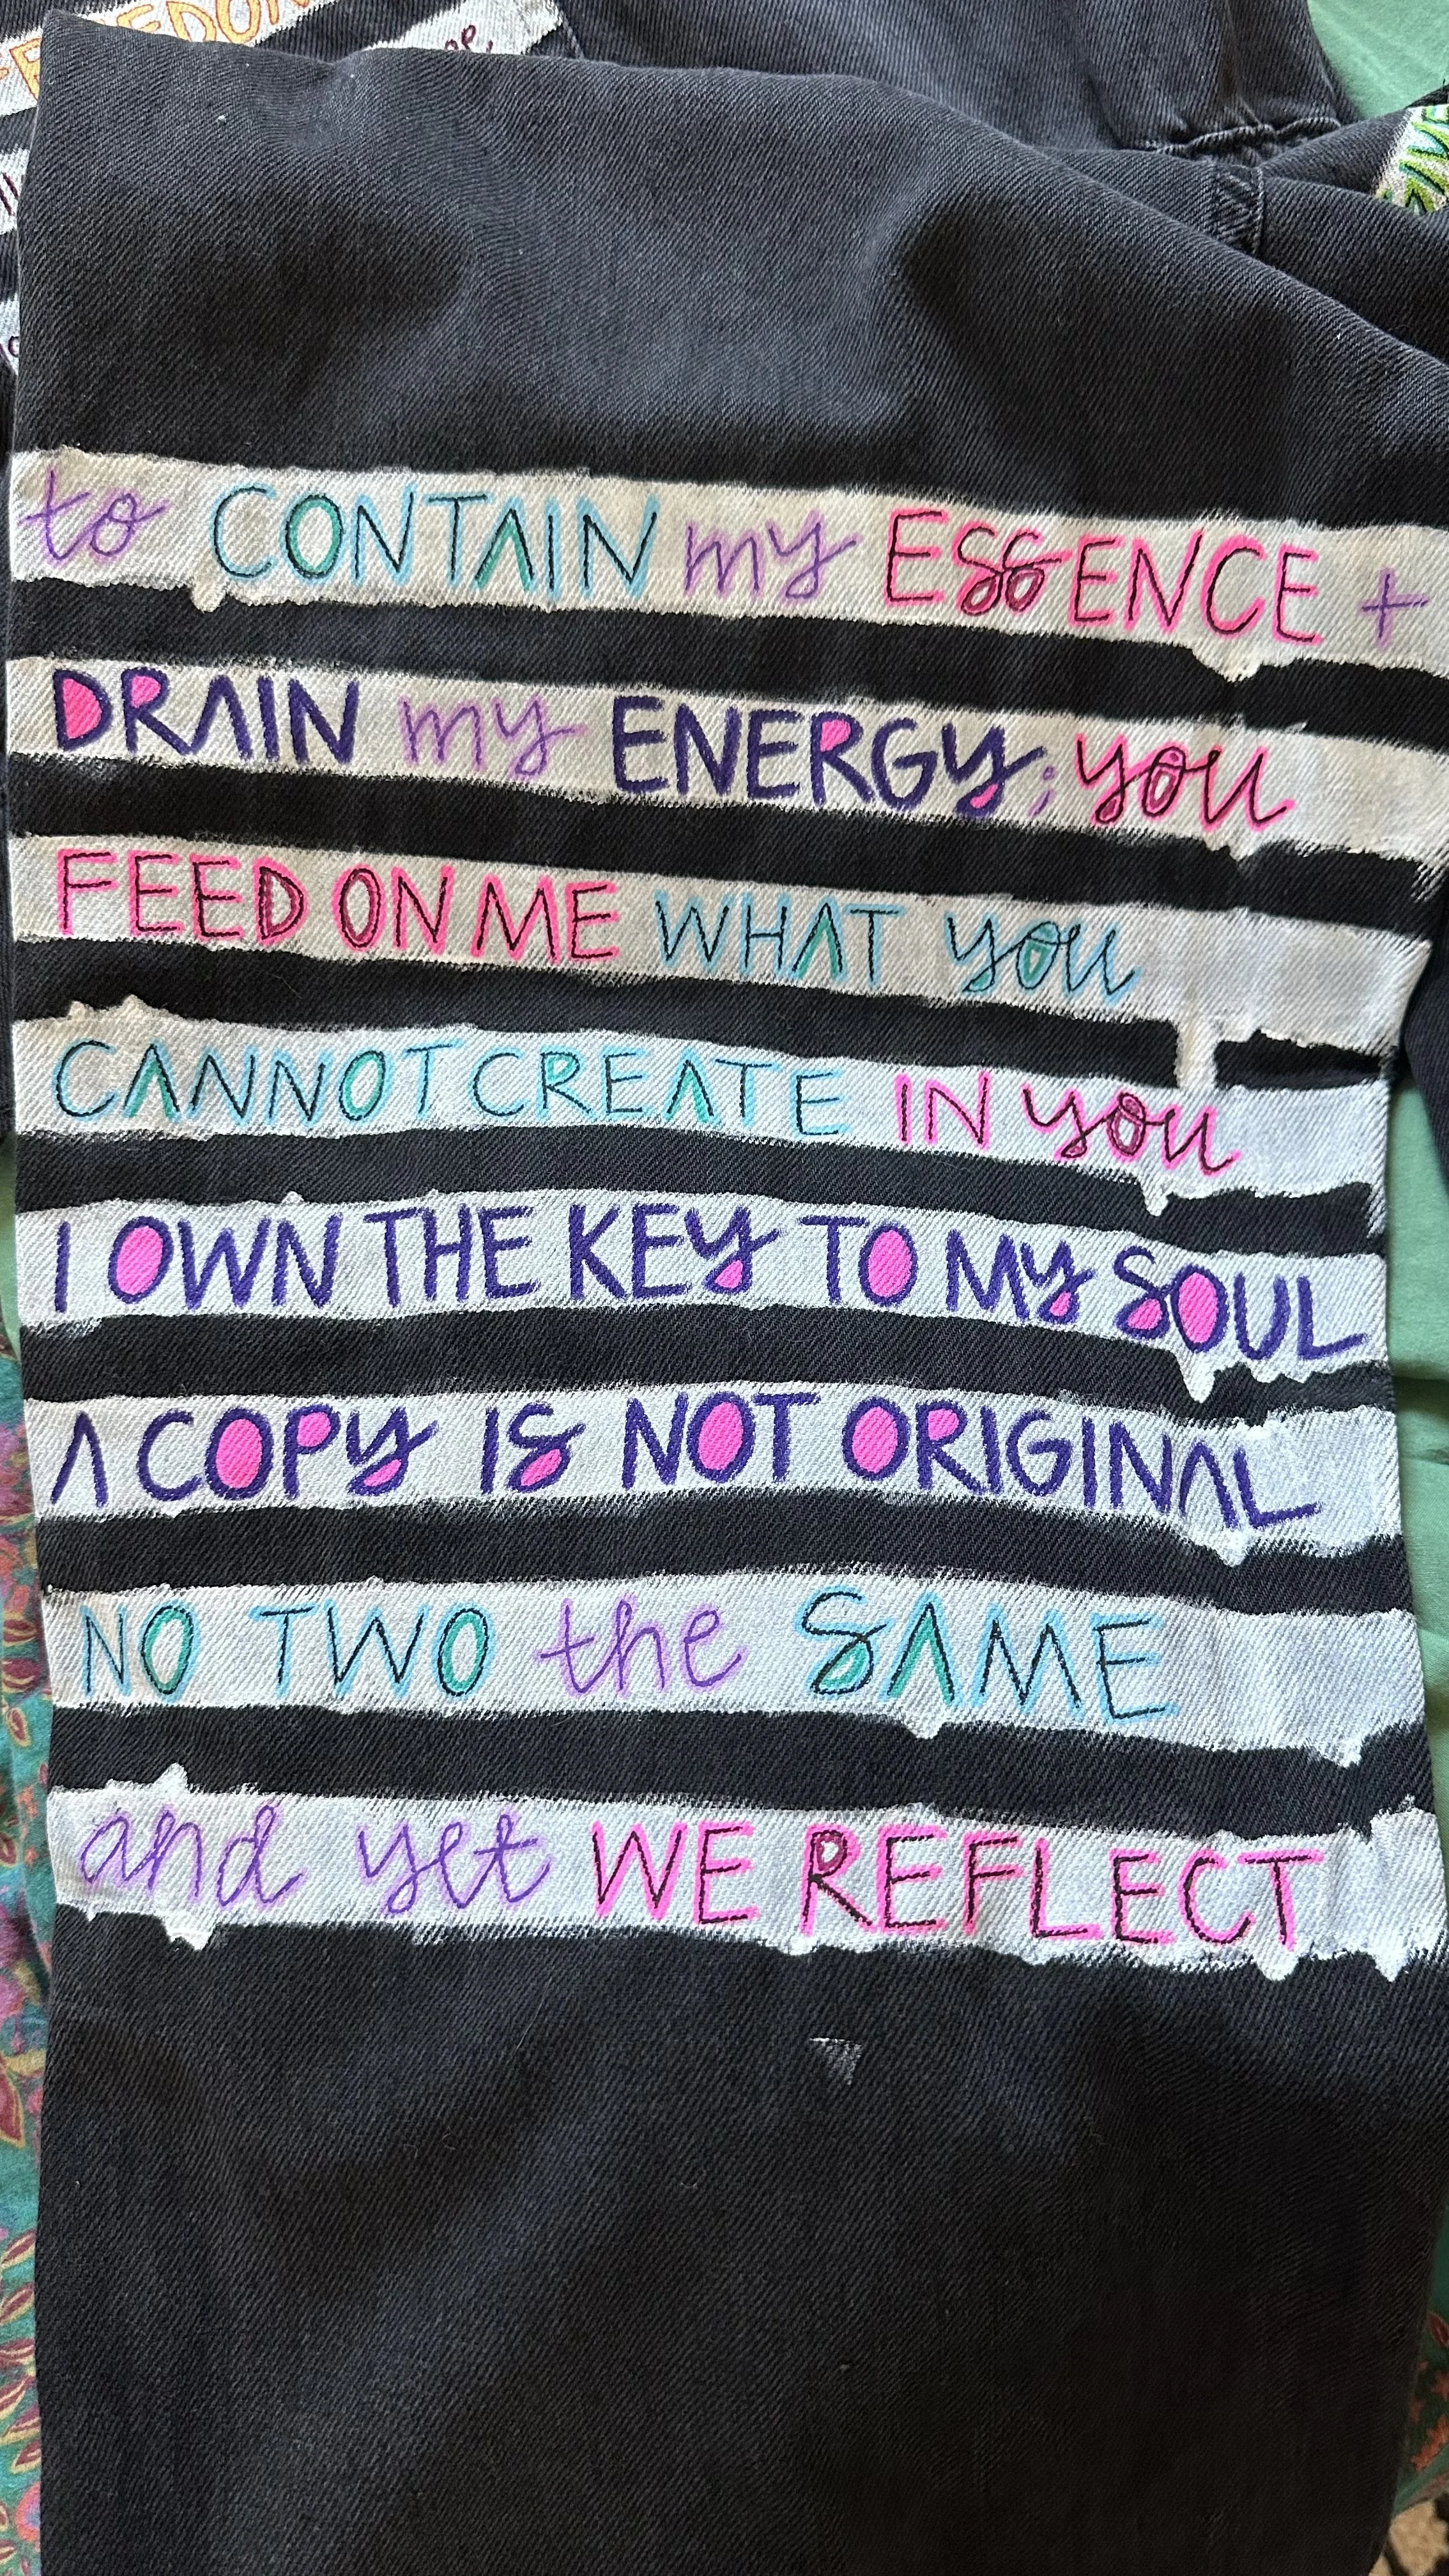 FREEDOM
to CONTAIN my ESSENCE +
DRAIN my ENERGY; you
FEED ON ME WHAT you
CANNOT CREATE IN you
I OWN THE KEY TO MY SOUL
A COPY IS NOT ORIGINAL
NO TWO the SAME
and yet WE REFLECT